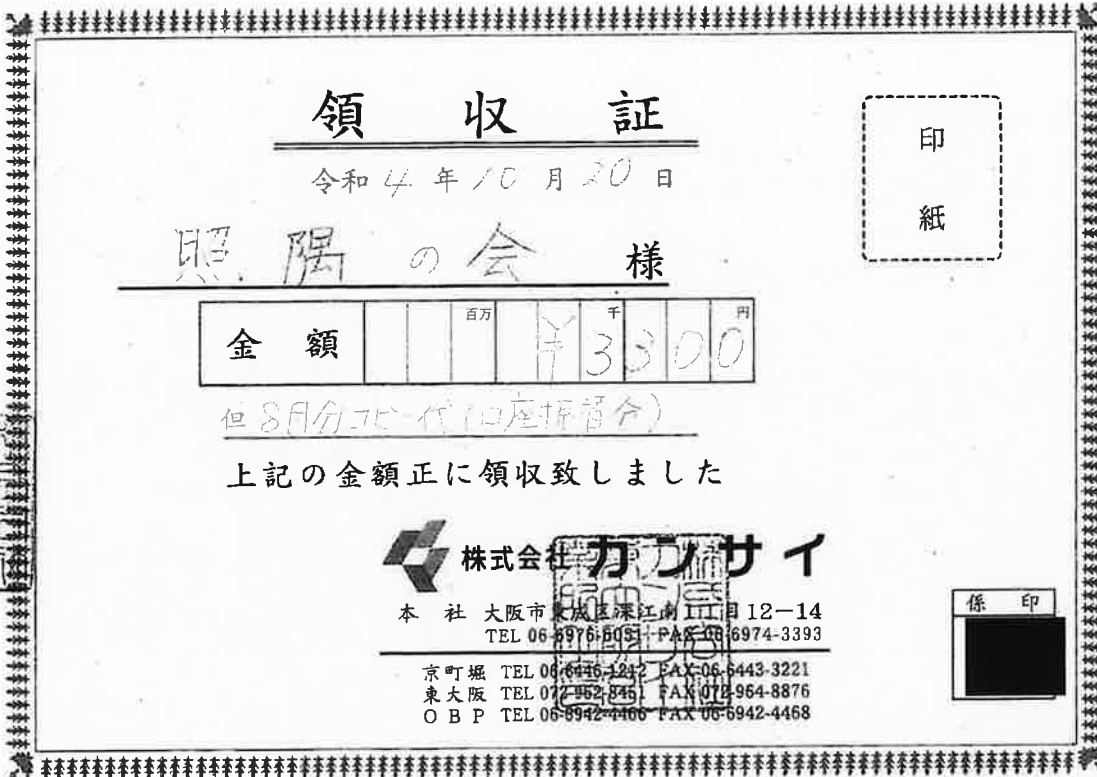 領収証
印紙
令和4年10月20日
照隅の会 様
金額 百万 千 円 ¥3300
但 8月分コピー代(口座振替分)
上記の金額正に領収致しました
株式会社カンサイ
本社 大阪市東成区深江南1丁目12-14
TEL 06-6976-5051 FAX 06-6974-3393
京町堀 TEL 06-6446-1212 FAX 06-6443-3221
東大阪 TEL 072-962-8451 FAX 072-964-8876
OBP TEL 06-6942-4466 FAX 06-6942-4468
係印